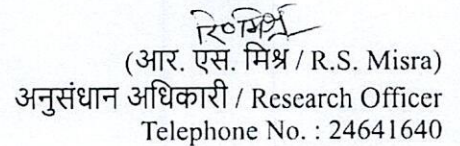 (आर. एस. मिश्र / R.S. Misra)
अनुसंधान अधिकारी / Research Officer
Telephone No. : 24641640